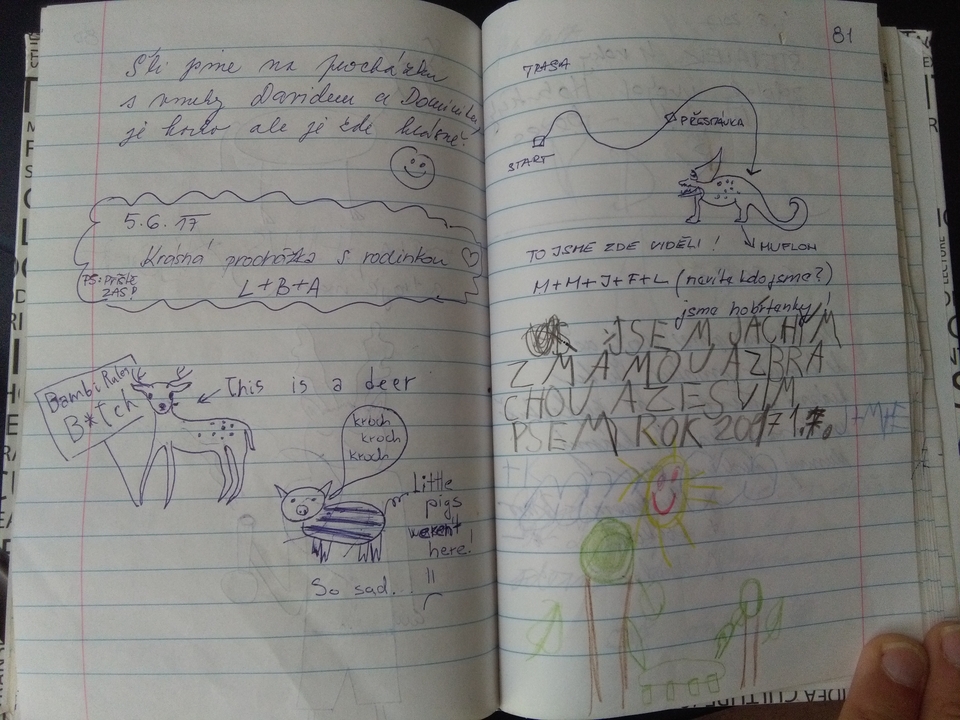 Šli jsme na procházku
s vnuky Davidem a Dominikem,
je horko ale je zde krásně.
5.6.17
Krásná procházka s rodinkou
PS: PŘÍŠTĚ
ZAS :P
L+B+A
Bambi Rules
B*tch
This is a deer
kroch
kroch
kroch
Little
pigs
weren't
here!
So sad.
81
TRASA
PŘESTÁVKA
START
MUFLON
TO JSME ZDE VIDĚLI !
M+M+J+F+L (nevíte kdo jsme?)
jsme hobrťanky!
JSEM JACHYM
Z MAMOU A ZBRA
CHOU A ZE SVIM
PSEM ROK 2017
J+M+F